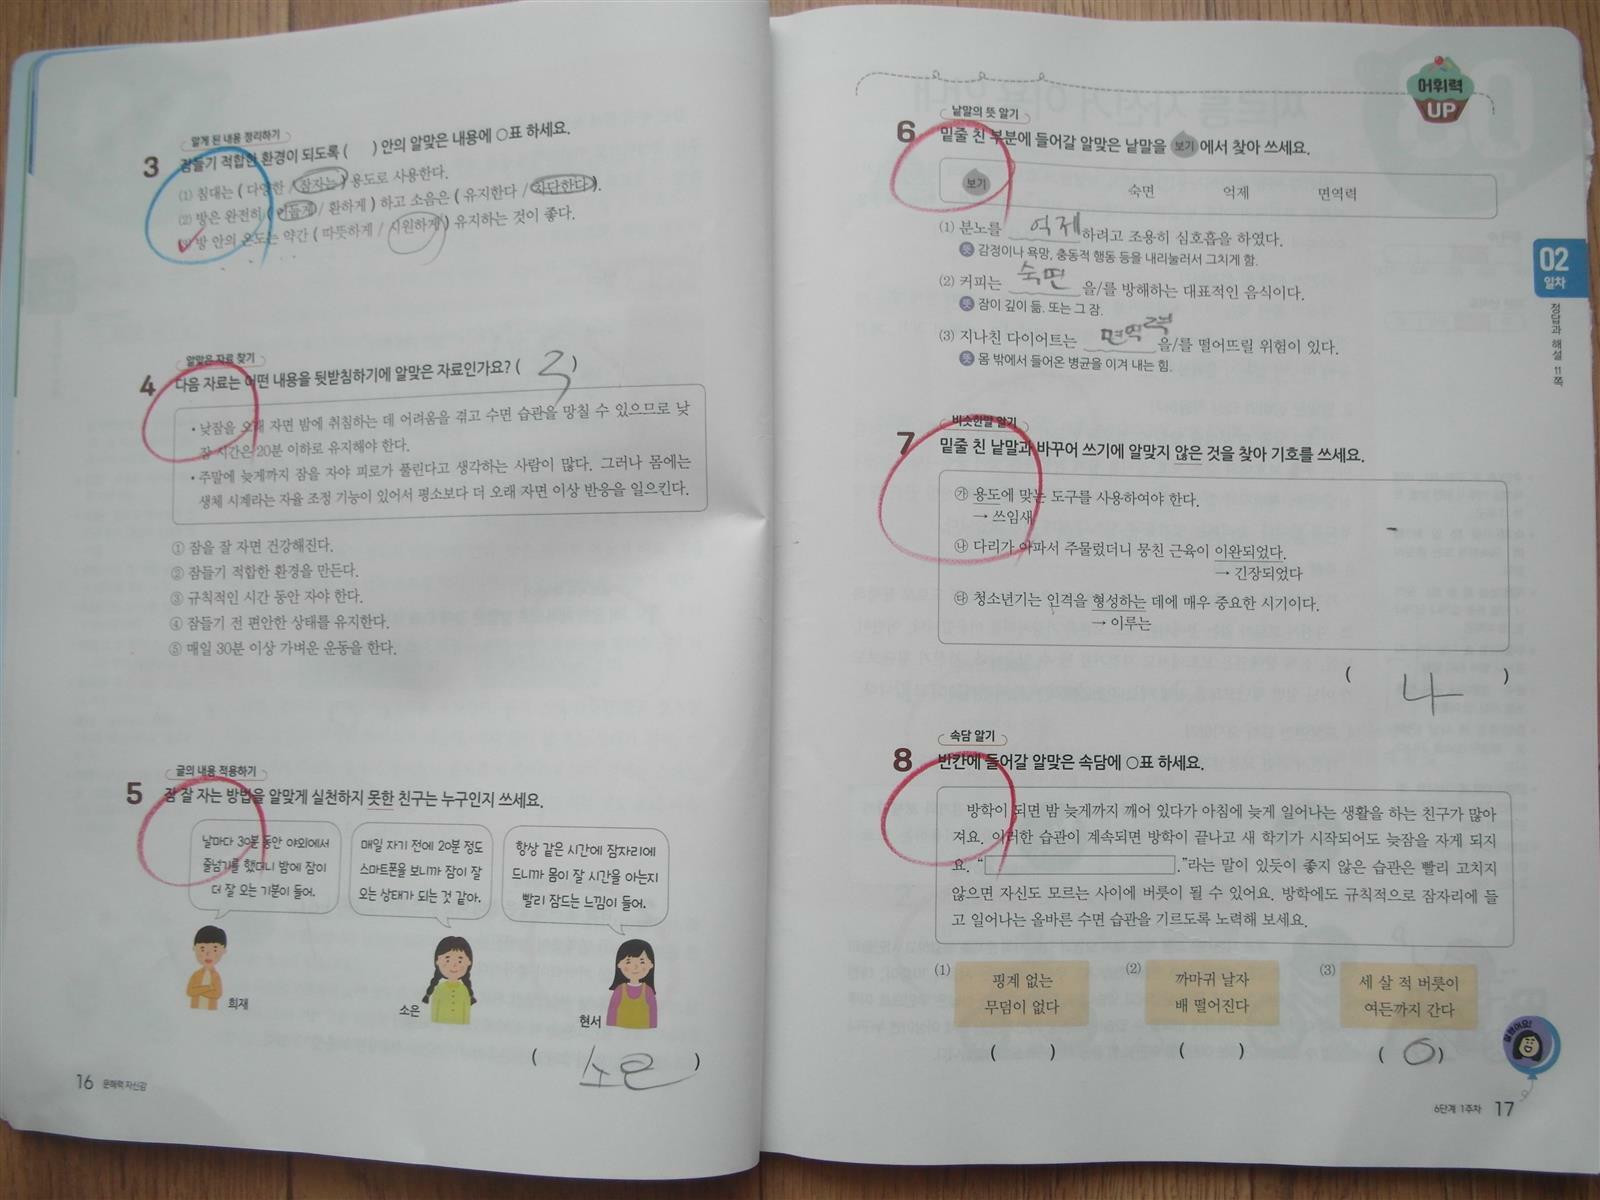 알게 된 내용 정리하기
3 잠들기 적합한 환경이 되도록 ( ) 안의 알맞은 내용에 ○표 하세요.
(1) 침대는 ( 다양한 / 잠자는 ) 용도로 사용한다.
(2) 방은 완전히 ( 어둡게 / 환하게 ) 하고 소음은 ( 유지한다 / 차단한다 ).
(3) 방 안의 온도는 약간 ( 따뜻하게 / 시원하게 ) 유지하는 것이 좋다.
알맞은 자료 찾기
4 다음 자료는 어떤 내용을 뒷받침하기에 알맞은 자료인가요? ( 3 )
• 낮잠을 오래 자면 밤에 취침하는 데 어려움을 겪고 수면 습관을 망칠 수 있으므로 낮
잠 시간은 20분 이하로 유지해야 한다.
• 주말에 늦게까지 잠을 자야 피로가 풀린다고 생각하는 사람이 많다. 그러나 몸에는
생체 시계라는 자율 조정 기능이 있어서 평소보다 더 오래 자면 이상 반응을 일으킨다.
① 잠을 잘 자면 건강해진다.
② 잠들기 적합한 환경을 만든다.
③ 규칙적인 시간 동안 자야 한다.
④ 잠들기 전 편안한 상태를 유지한다.
⑤ 매일 30분 이상 가벼운 운동을 한다.
글의 내용 적용하기
5 잠 잘 자는 방법을 알맞게 실천하지 못한 친구는 누구인지 쓰세요.
날마다 30분 동안 야외에서
줄넘기를 했더니 밤에 잠이
더 잘 오는 기분이 들어.
매일 자기 전에 20분 정도
스마트폰을 보니까 잠이 잘
오는 상태가 되는 것 같아.
항상 같은 시간에 잠자리에
드니까 몸이 잘 시간을 아는지
빨리 잠드는 느낌이 들어.
희재
소은
현서
( 소은 )
16 문해력 자신감
어휘력
UP
낱말의 뜻 알기
6 밑줄 친 부분에 들어갈 알맞은 낱말을 보기 에서 찾아 쓰세요.
보기 숙면 억제 면역력
(1) 분노를 억제 하려고 조용히 심호흡을 하였다.
뜻 감정이나 욕망, 충동적 행동 등을 내리눌러서 그치게 함.
(2) 커피는 숙면 을/를 방해하는 대표적인 음식이다.
뜻 잠이 깊이 듦. 또는 그 잠.
(3) 지나친 다이어트는 면역력 을/를 떨어뜨릴 위험이 있다.
뜻 몸 밖에서 들어온 병균을 이겨 내는 힘.
비슷한말 알기
7 밑줄 친 낱말과 바꾸어 쓰기에 알맞지 않은 것을 찾아 기호를 쓰세요.
㉮ 용도에 맞는 도구를 사용하여야 한다.
→ 쓰임새
㉯ 다리가 아파서 주물렀더니 뭉친 근육이 이완되었다.
→ 긴장되었다
㉰ 청소년기는 인격을 형성하는 데에 매우 중요한 시기이다.
→ 이루는
( 나 )
속담 알기
8 빈칸에 들어갈 알맞은 속담에 ○표 하세요.
방학이 되면 밤 늦게까지 깨어 있다가 아침에 늦게 일어나는 생활을 하는 친구가 많아
져요. 이러한 습관이 계속되면 방학이 끝나고 새 학기가 시작되어도 늦잠을 자게 되지
요. “ .”라는 말이 있듯이 좋지 않은 습관은 빨리 고치지
않으면 자신도 모르는 사이에 버릇이 될 수 있어요. 방학에도 규칙적으로 잠자리에 들
고 일어나는 올바른 수면 습관을 기르도록 노력해 보세요.
(1) 핑계 없는
무덤이 없다
(2) 까마귀 날자
배 떨어진다
(3) 세 살 적 버릇이
여든까지 간다
( ) ( ) ( ○ )
02
일차
정답과 해설 11쪽
6단계 1주차 17